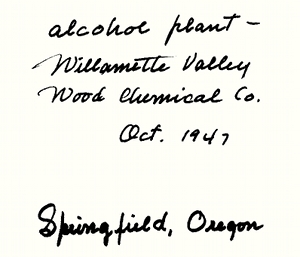 alcohol plant –
Willamette Valley
Wood Chemical Co.
Oct. 1947
Springfield, Oregon